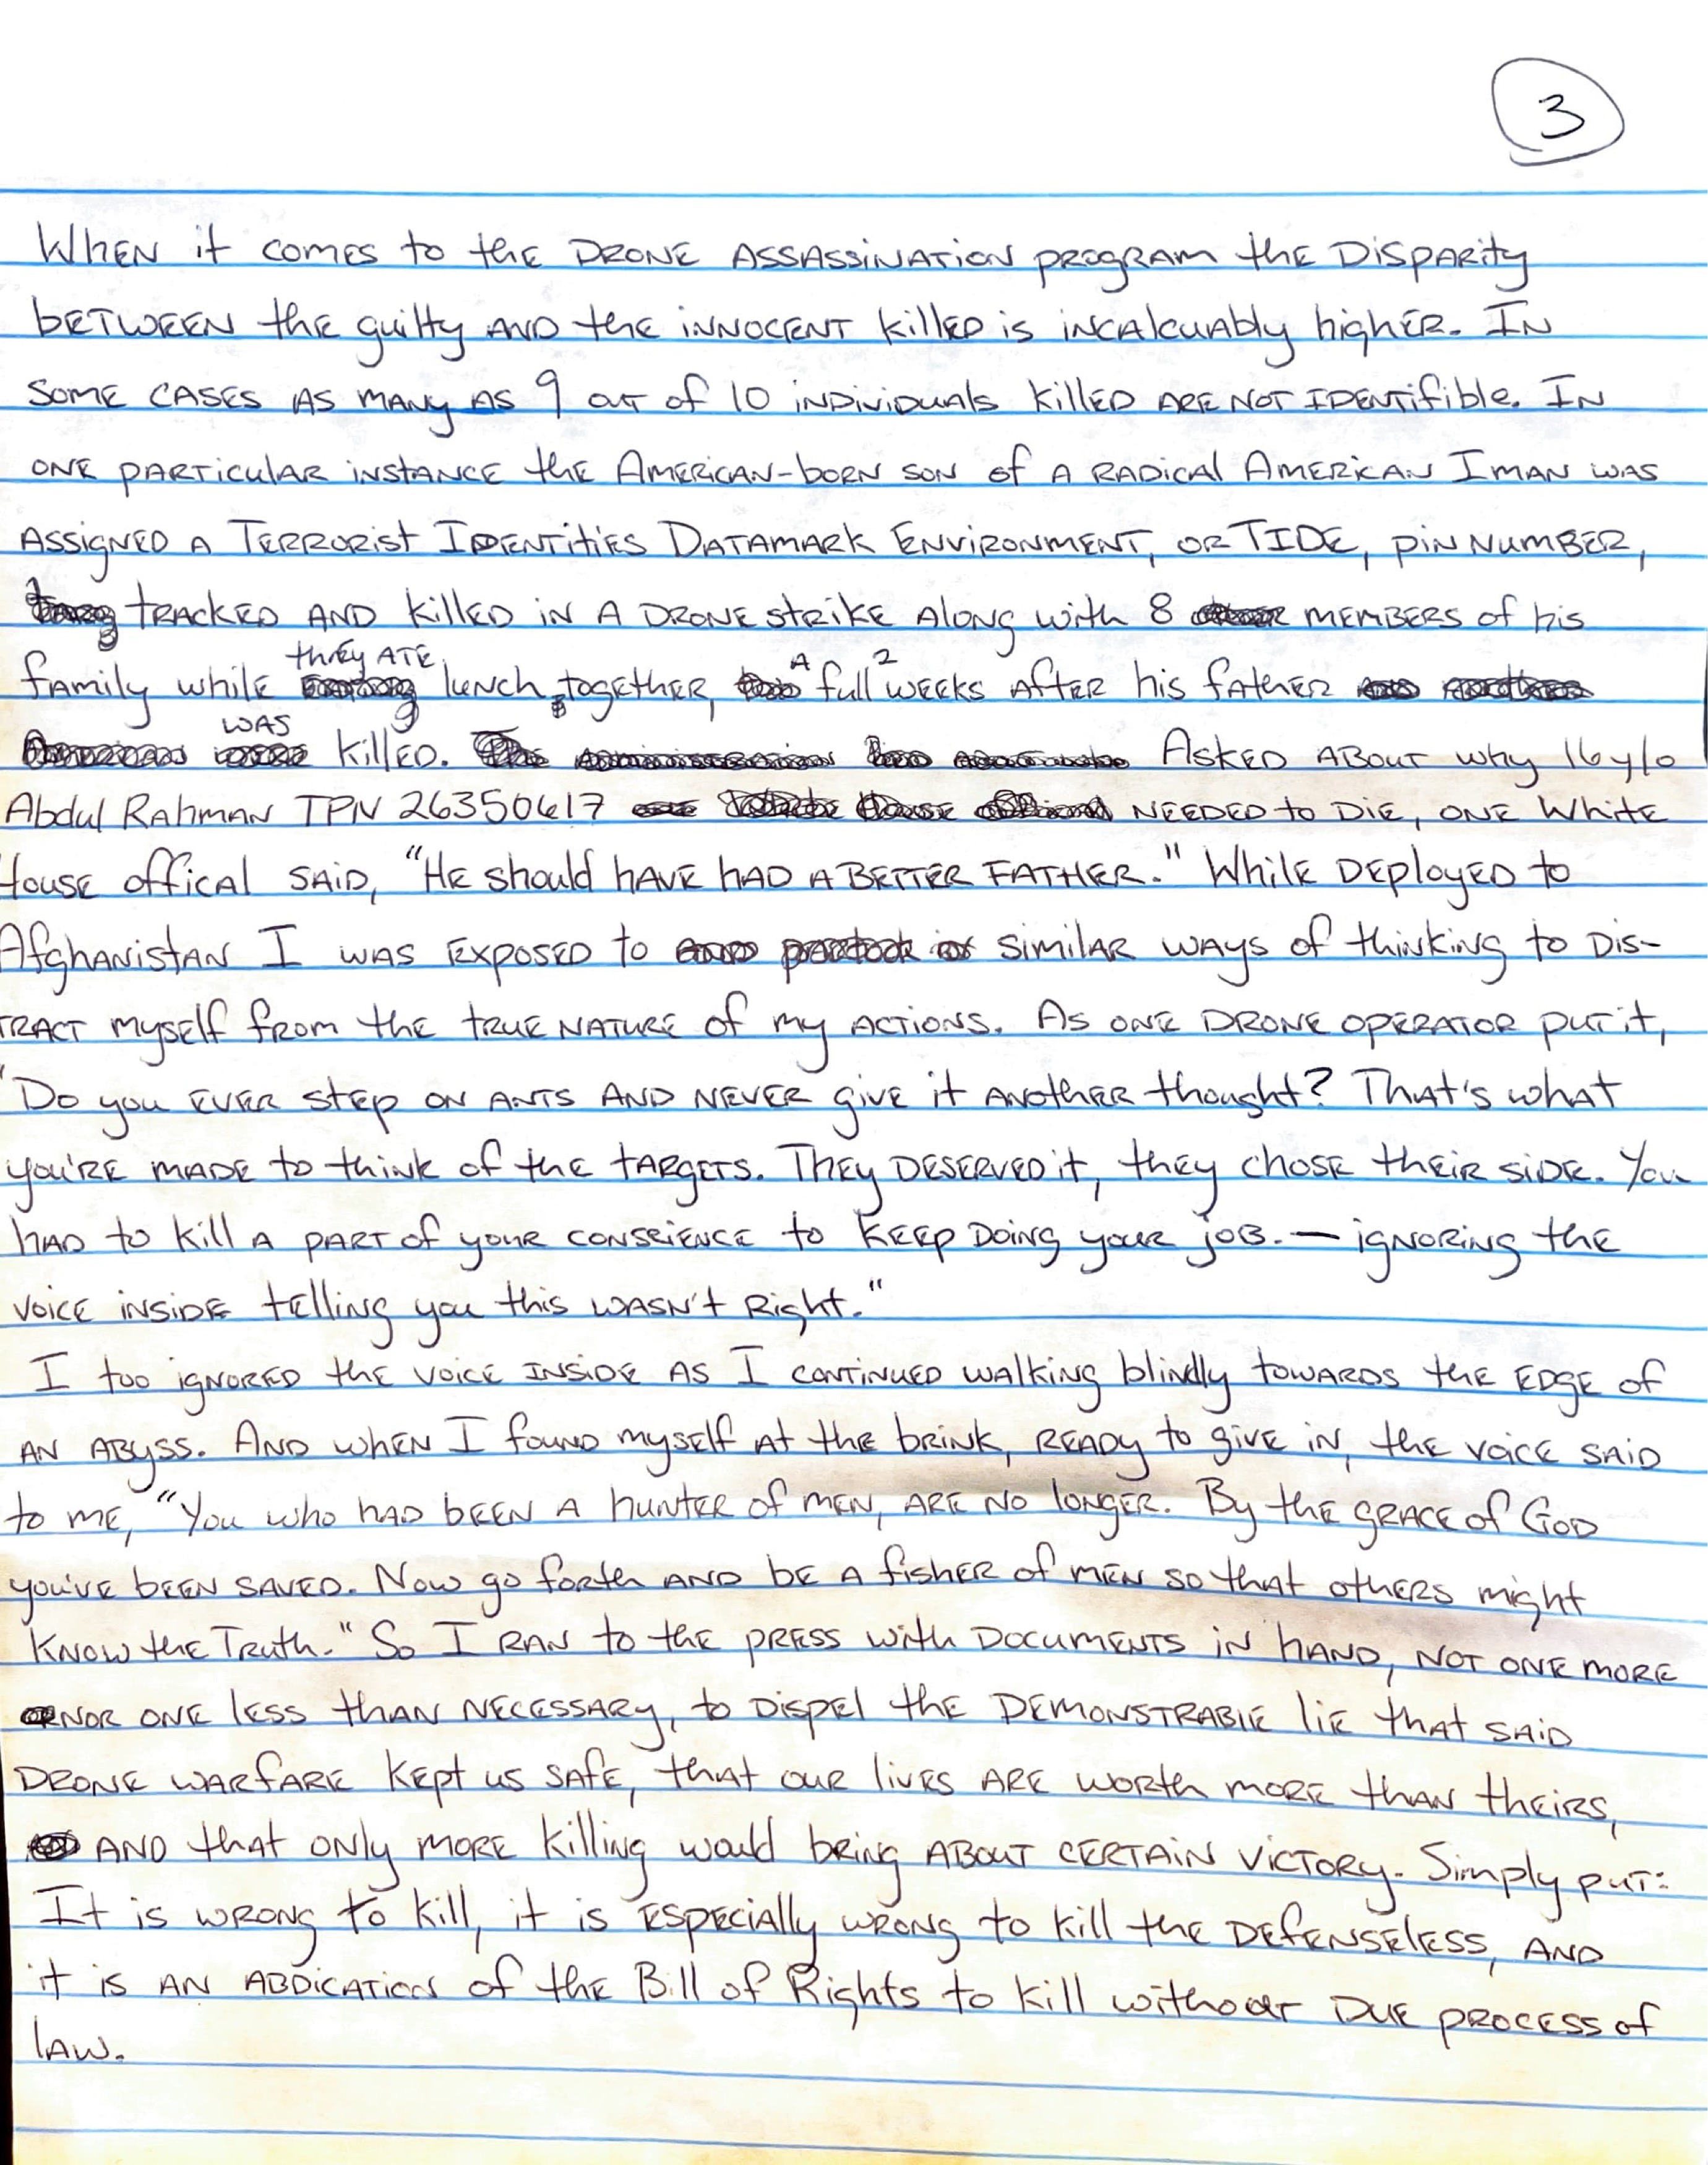 3
When it comes to the drone assassination program the disparity
between the guilty and the innocent killed is incalcuably higher. In
some cases as many as 9 out of 10 individuals killed are not identifible. In
one particular instance the American-born son of a radical American Iman was
assigned a Terrorist Identities Datamark Environment, or TIDE, pin number,
tracked and killed in a drone strike along with 8 members of his
family while they ate lunch together, a full 2 weeks after his father
was killed. Asked about why 16 y/o
Abdul Rahman TPN 26350617 needed to die, one White
House offical said, "He should have had a better father." While deployed to
Afghanistan I was exposed to similar ways of thinking to dis-
tract myself from the true nature of my actions. As one drone operator put it,
"Do you ever step on ants and never give it another thought? That's what
you're made to think of the targets. They deserved it, they chose their side. You
had to kill a part of your conscience to keep doing your job. — ignoring the
voice inside telling you this wasn't right."
I too ignored the voice inside as I continued walking blindly towards the edge of
an abyss. And when I found myself at the brink, ready to give in, the voice said
to me, "You who had been a hunter of men, are no longer. By the grace of God
you've been saved. Now go forth and be a fisher of men so that others might
know the Truth." So I ran to the press with documents in hand, not one more
nor one less than necessary, to dispel the demonstrable lie that said
drone warfare kept us safe, that our lives are worth more than theirs,
and that only more killing would bring about certain victory. Simply put:
It is wrong to kill, it is especially wrong to kill the defenseless, and
it is an abdication of the Bill of Rights to kill without due process of
law.